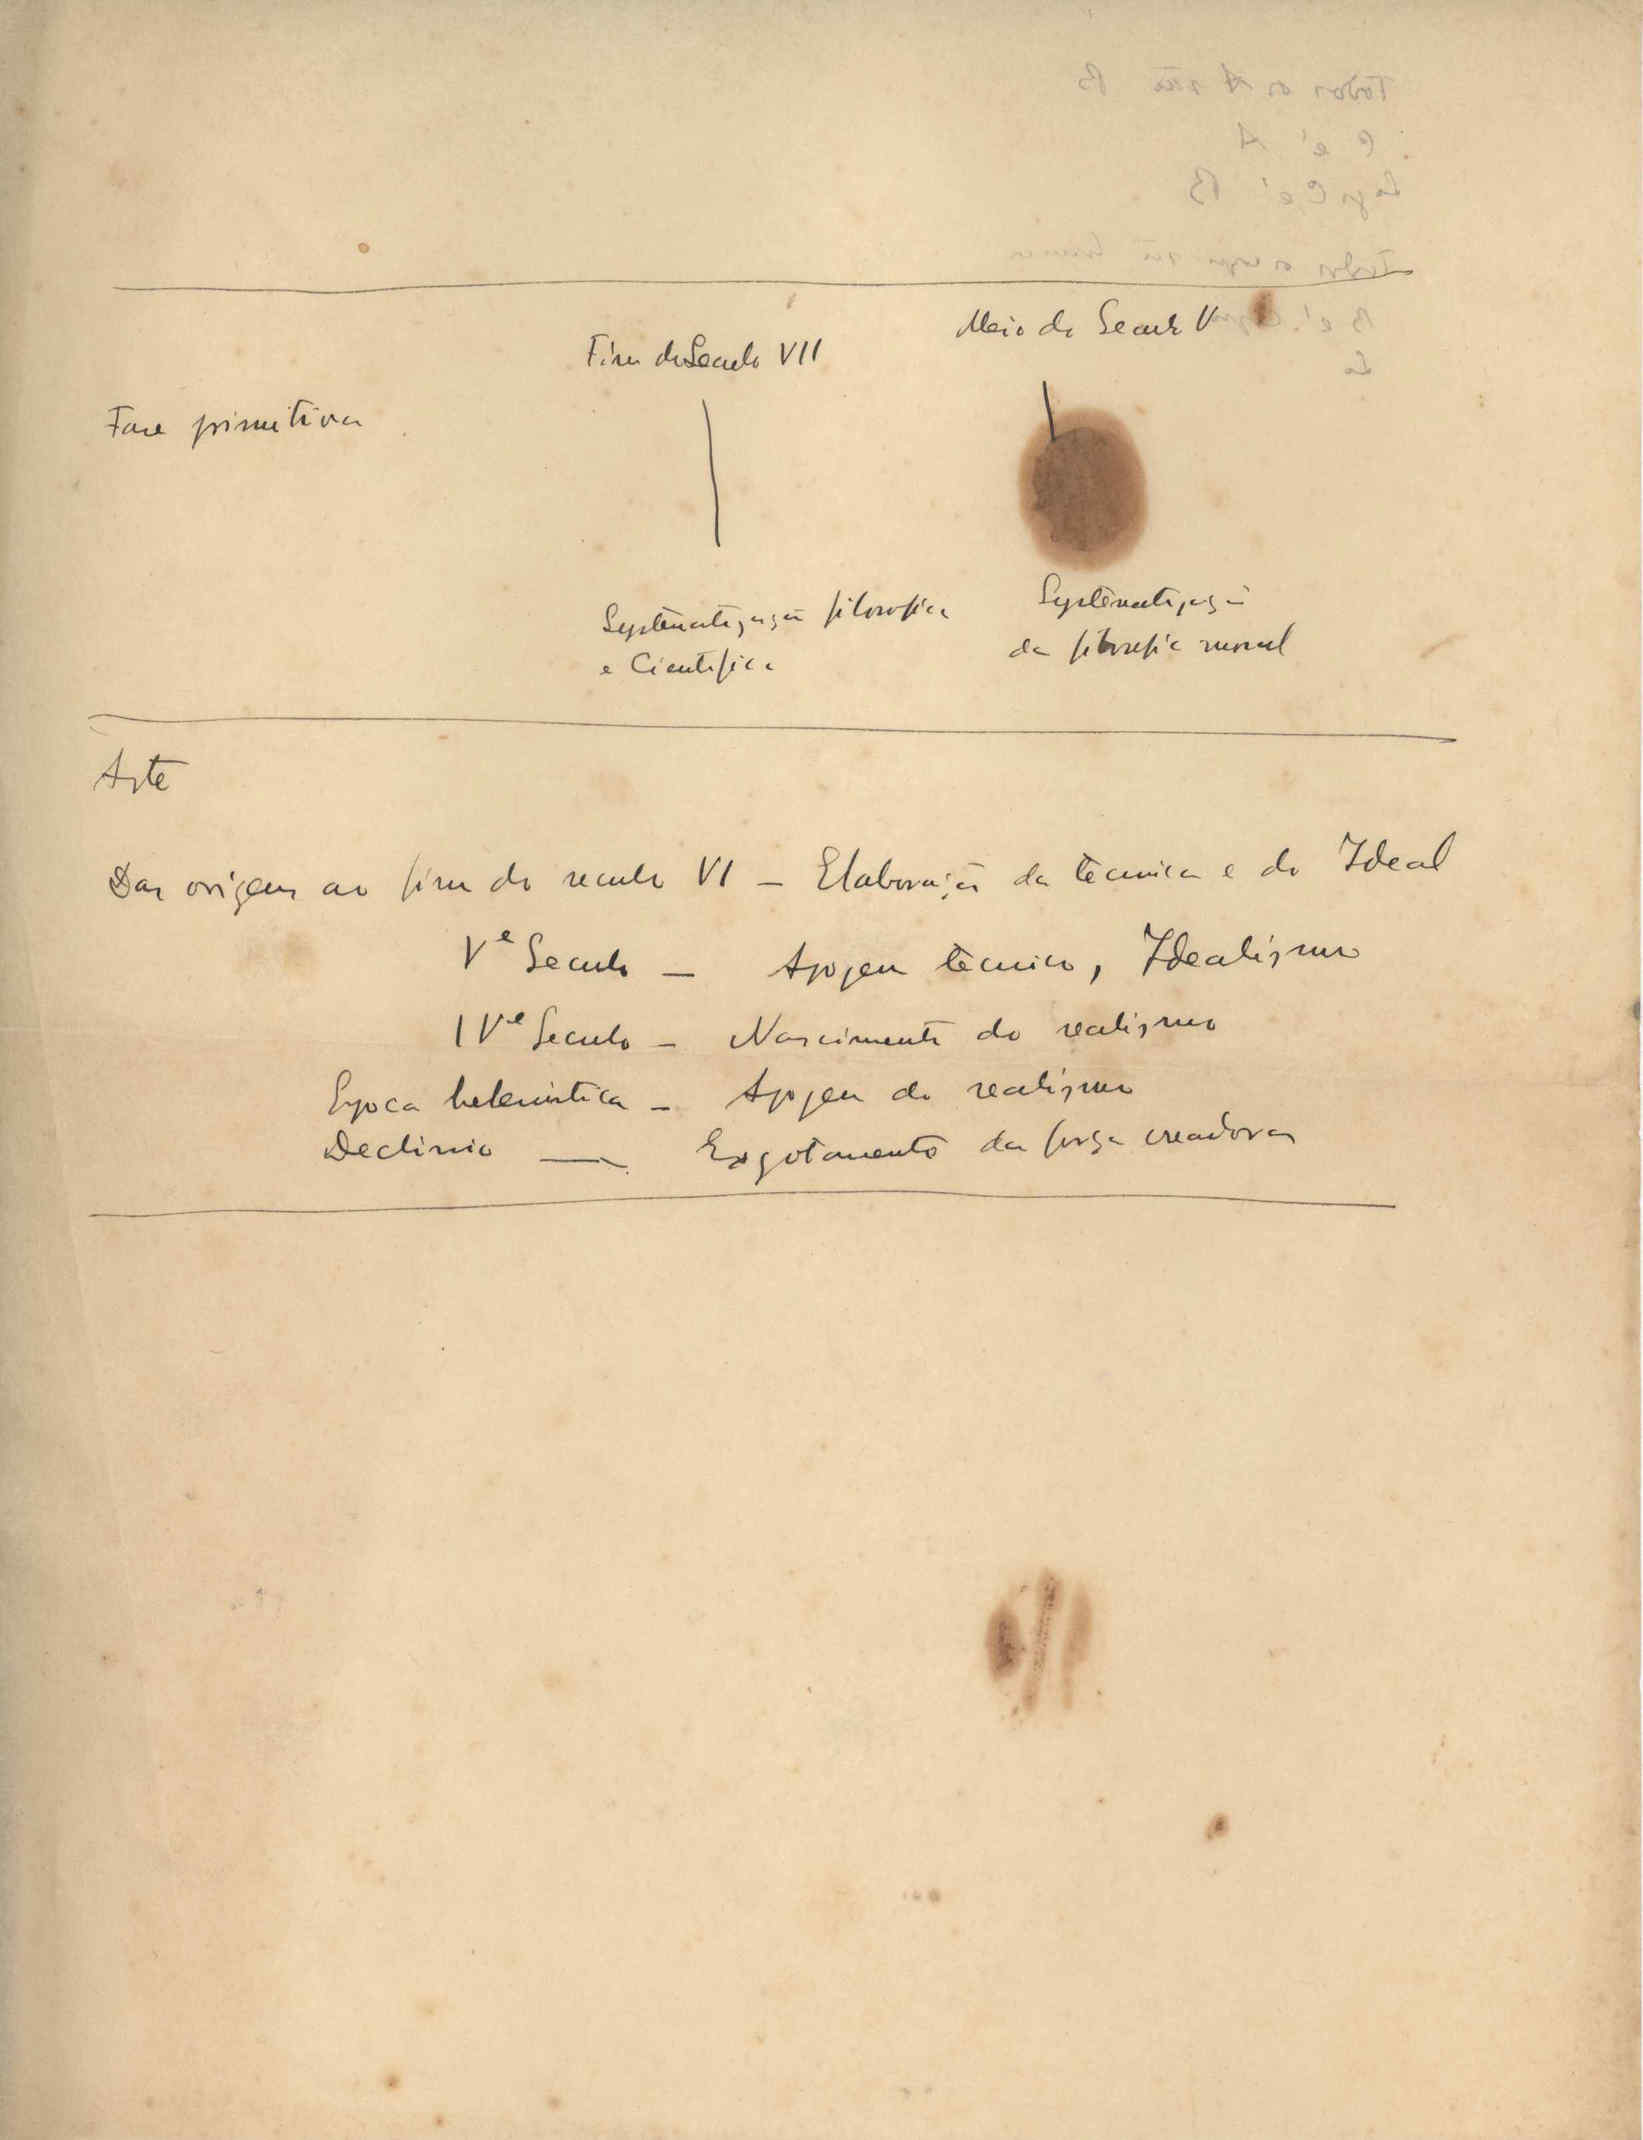 Meio do Seculo V
Fim do Seculo VII
Fase primitiva
Systematização filosofica
e Cientifica
Systematização
da filosofia moral
Arte
Das origens ao fim do seculo VI – Elaboração da técnica e do Ideal
Vº Seculo – Apogeu técnico, Idealismo
IVº Seculo – Nascimento do realismo
Epoca helenistica – Apogeu do realismo
Declinio — Esgotamento da força creadora